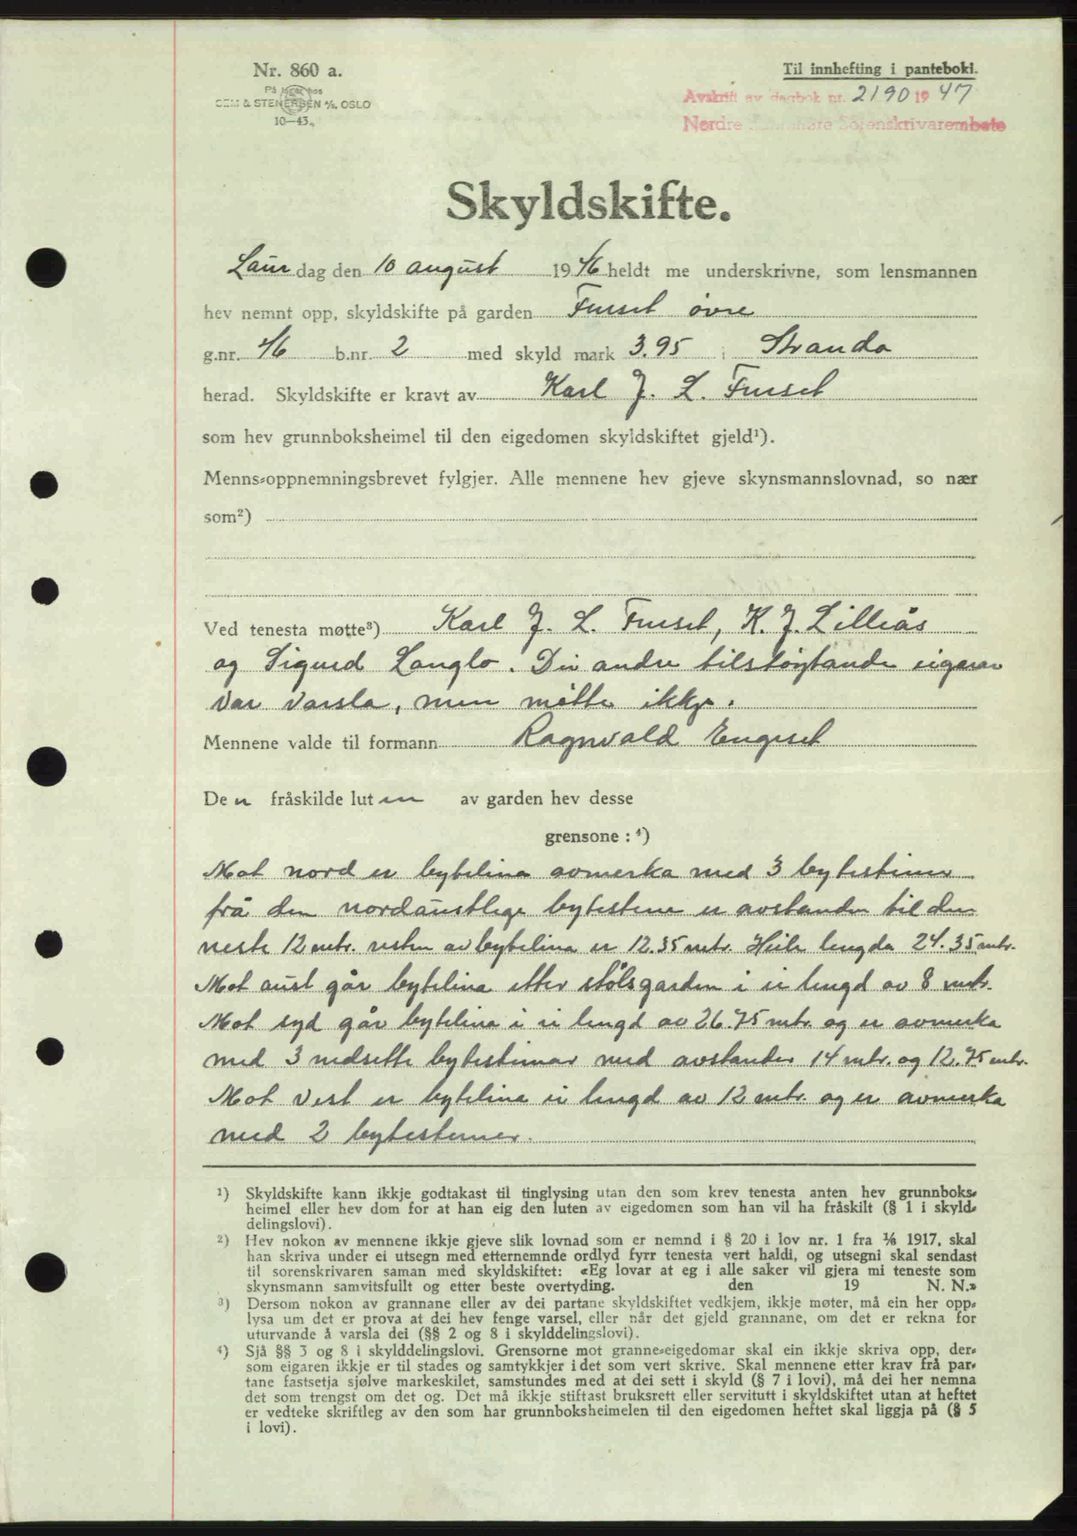 Nr. 860 a.
På lager hos
SEM & STENERSEN A/S, OSLO
10—43.
Til innhefting i panteboki.
Avskrift av dagbok nr. 2190 1947
Nordre Sunnmøre Sorenskrivarembete
Skyldskifte.
Laur dag den 10 august 1946 heldt me underskrivne, som lensmannen
hev nemnt opp, skyldskifte på garden Furset øvre
g.nr. 46 b.nr. 2 med skyld mark 3.95 i Stranda
herad. Skyldskifte er kravt av Karl J. L. Furset
som hev grunnboksheimel til den eigedomen skyldskiftet gjeld¹).
Menns-oppnemningsbrevet fylgjer. Alle mennene hev gjeve skynsmannslovnad, so nær
som²)
Ved tenesta møtte³) Karl J. L. Furset, K. J. Lilleås
og Sigurd Langlo. Dei andre tilstøytande eigarar
var varsla, men møtte ikkje.
Mennene valde til formann Ragnvald Engeset
De n fråskilde lut en av garden hev desse
grensone : ⁴)
Mot nord er bytelina avmerka med 3 bytesteiner
frå den nordaustlege bytestene er avstanden til den
neste 12 mtr. resten av bytelina er 12.35 mtr. Heile lengda 24.35 mtr.
Mot aust går bytelina etter stølsgarden i ei lengd av 8 mtr.
Mot syd går bytelina i ei lengd av 26.75 mtr. og er avmerka
med 3 nedsette bytesteinar med avstander 14 mtr. og 12.75 mtr.
Mot vest er bytelina ei lengd av 12 mtr. og er avmerka
med 2 bytesteiner.
¹) Skyldskifte kann ikkje godtakast til tinglysing utan den som krev tenesta anten hev grunnboks-
heimel eller hev dom for at han eig den luten av eigedomen som han vil ha fråskilt (§ 1 i skyld-
delingslovi).
²) Hev nokon av mennene ikkje gjeve slik lovnad som er nemnd i § 20 i lov nr. 1 fra 1/6 1917, skal
han skriva under ei utsegn med etternemnde ordlyd fyrr tenesta vert haldi, og utsegni skal sendast
til sorenskrivaren saman med skyldskiftet: «Eg lovar at eg i alle saker vil gjera mi teneste som
skynsmann samvitsfullt og etter beste overtyding. den 19 N. N.»
³) Dersom nokon av grannane eller av dei partane skyldskiftet vedkjem, ikkje møter, må ein her opp-
lysa um det er prova at dei hev fenge varsel, eller når det gjeld grannane, om det er rekna for
uturvande å varsla dei (§§ 2 og 8 i skylddelingslovi).
⁴) Sjå §§ 3 og 8 i skylddelingslovi. Grensorne mot granne-eigedomar skal ein ikkje skriva opp, der-
som eigaren ikkje er til stades og samtykkjer i det som vert skrive. Skal mennene etter krav frå par-
tane fastsetja sjølve markeskilet, samstundes med at dei sett i skyld (§ 7 i lovi), må dei her nemna
det som trengst om det og. Det må ikkje stiftast bruksrett eller servitutt i skyldskiftet utan at heftet
er vedteke skriftleg av den som har grunnboksheimelen til den eigedomen heftet skal liggja på (§ 5
i lovi).